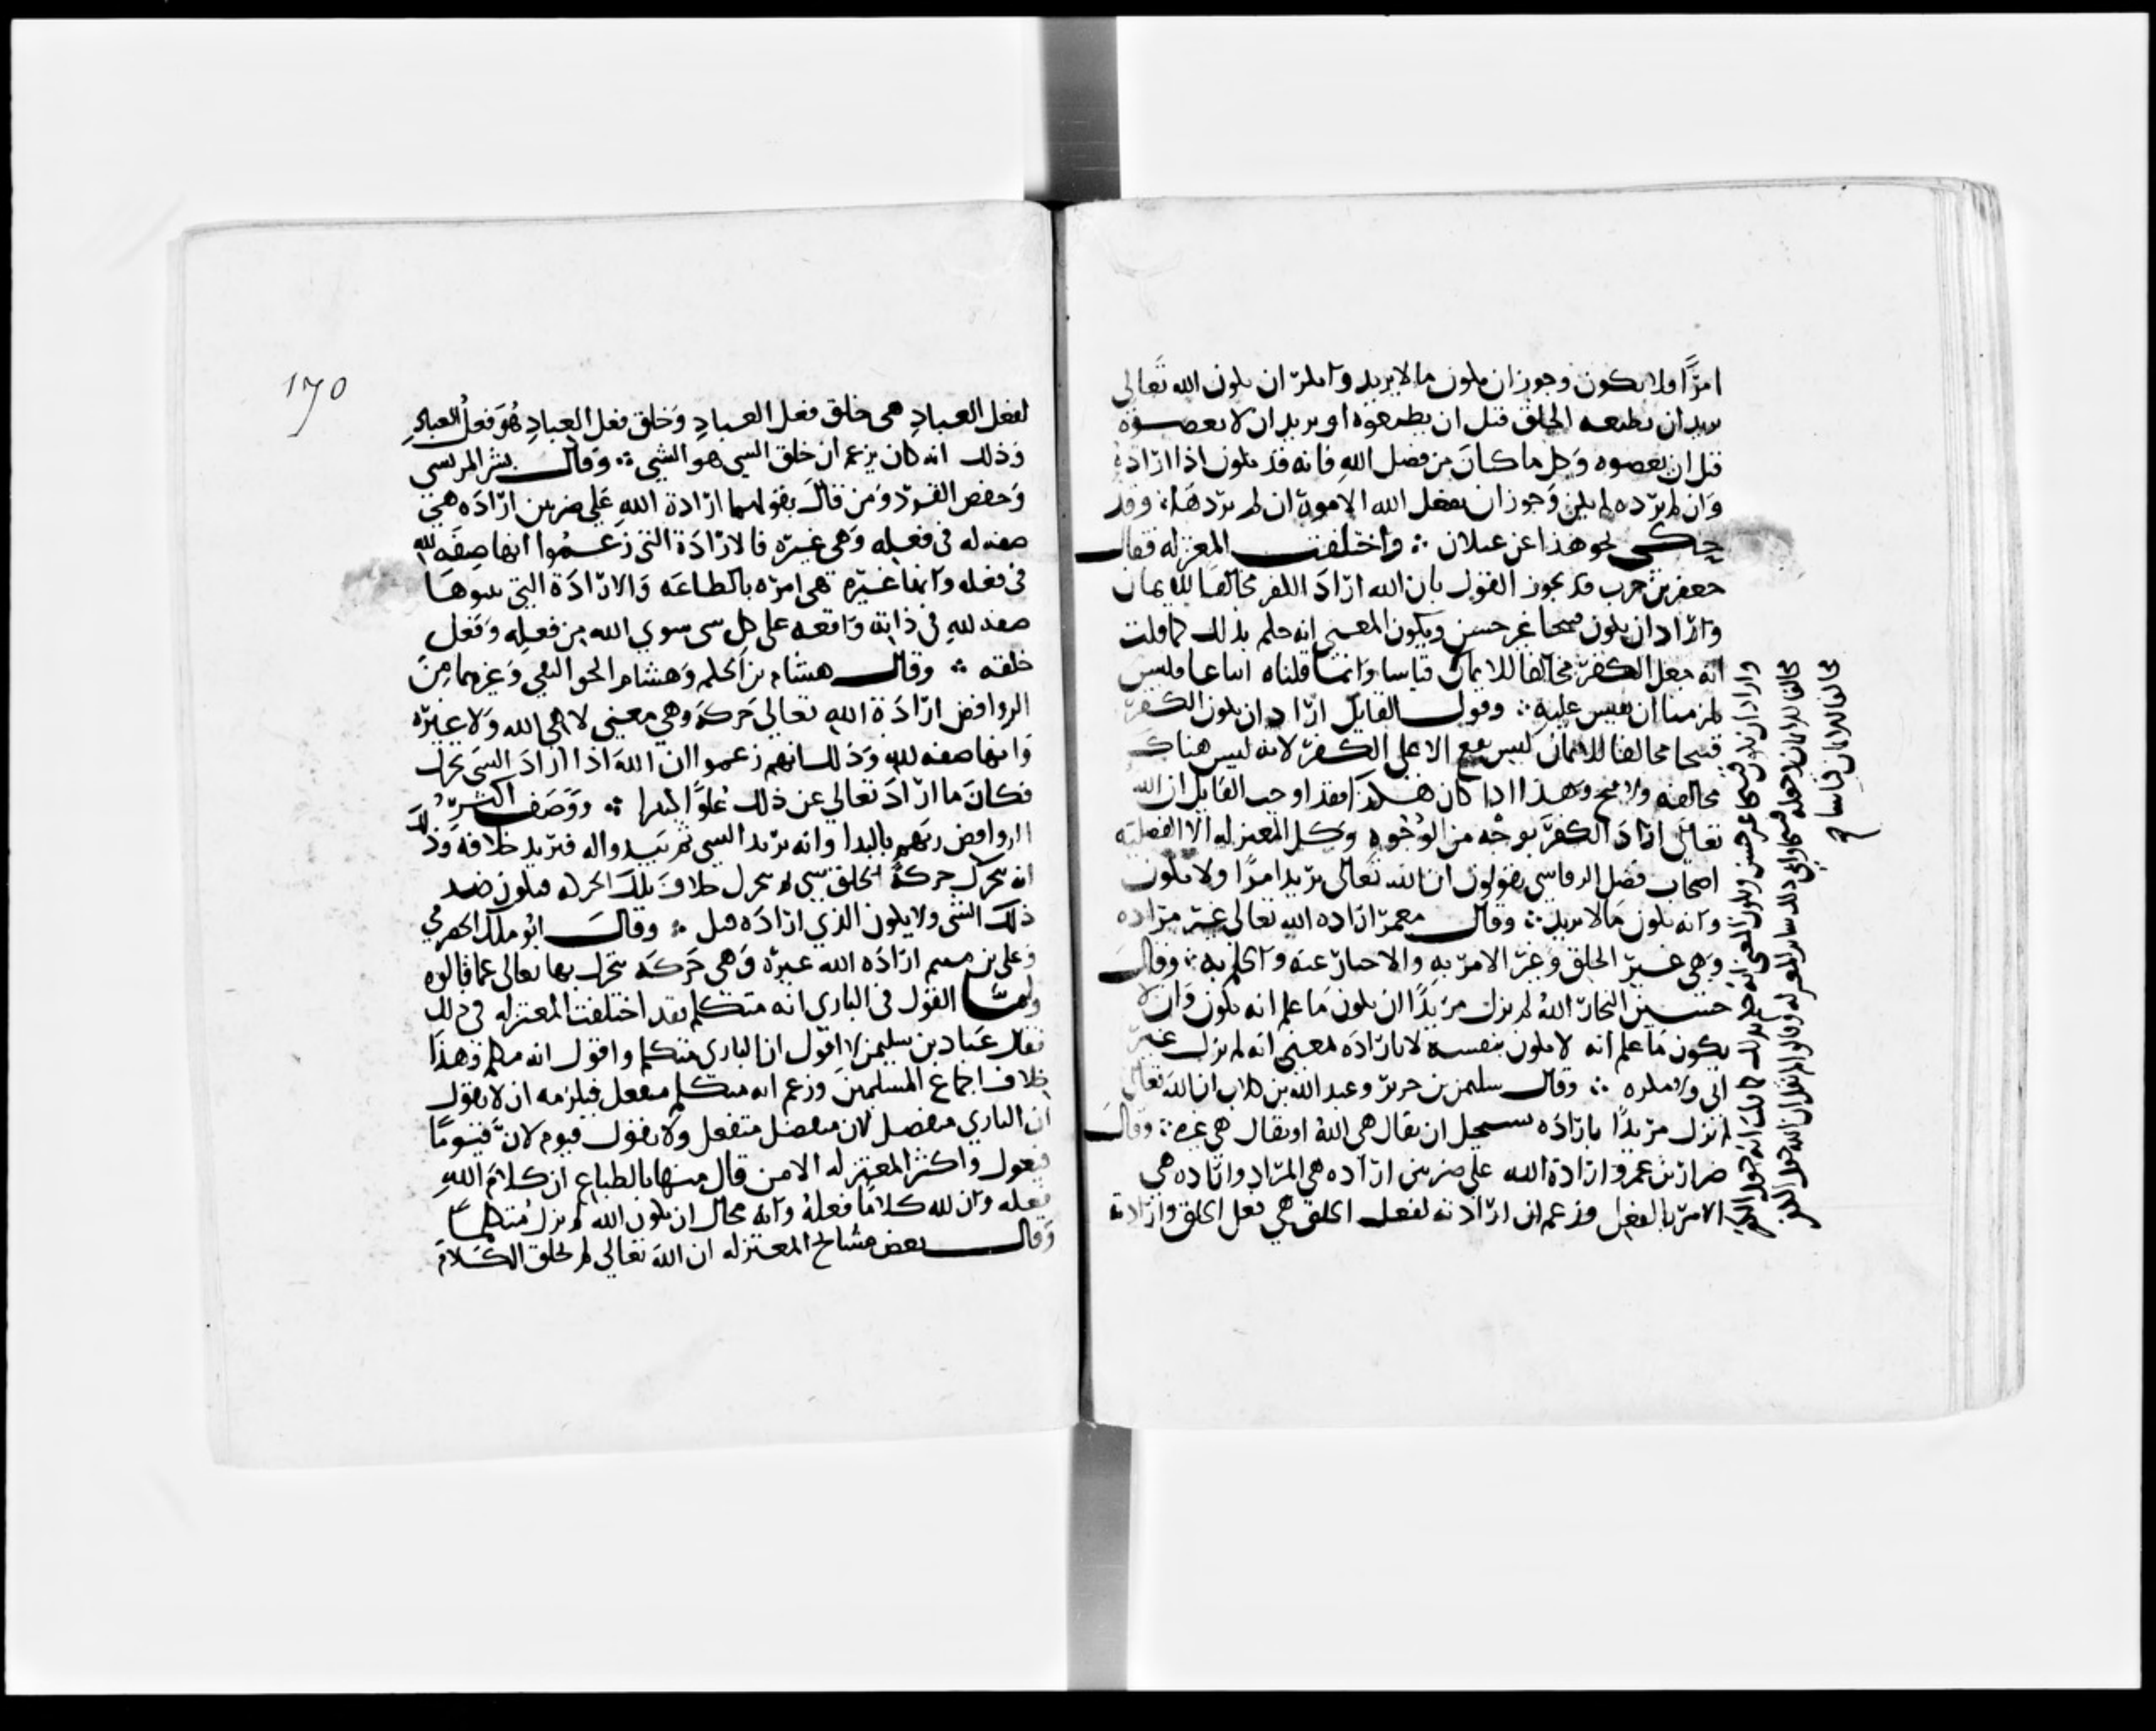 امرا ولا يكون وجوز ان يكون ما لا يريد وانكر ان يكون الله تعالى
يريد ان يطيعه الخلق قبل ان يطيعوه او يريد ان لا يعصوه
قبل ان يعصوه وكل ما كان من فضل الله فانه قد يكون اذا اراده
وان لم يرده لم يكن وجوز ان يفعل الله الامور وان لم يردها ∴ وقد
حكى نحو هذا عن غيلان ∴ واختلفت المعتزله فقال
جعفر بن حرب قد يجوز القول بان الله اراد الكفر مخالفا للايمان
واراد ان يكون قبيحا غير حسن ويكون المعنى انه حكم بذلك كما قلت
انه جعل الكفر مخالفا للايمان قياسا وانما قلناه اتباعا فليس
يلزمنا ان نقيس عليه ∴ وقول القايل اراد ان يكون الكفر
قبيحا مخالفا للايمان ليس يقع الا على الكفر لانه ليس هناك
مخالفه ولا قبح وهذا اذا كان هكذا فقد اوجب القايل ان الله
تعالى اراد الكفر بوجه من الوجوه وكل المعتزله الا الفضليه
اصحاب فضل الرقاشي يقولون ان الله تعالى يريد امرا ولا يكون
وانه يكون ما لا يريد ∴ وقال معمر اراده الله تعالى غير مراده
وهي غير الخلق وغير الامر به والاخبار عنه والحكم به ∴ وقال
حسين النجار الله لم يزل مريدا ان يكون ما علم انه يكون وان لا
يكون ما علم انه لا يكون بنفسه لا باراده بمعنى انه لم يزل غير
ابي ولا مكره ∴ وقال سليمن بن جرير وعبد الله بن كلاب ان الله تعالى
لم يزل مريدا باراده يستحيل ان يقال هي الله او يقال هي غيره ∴ وقال
ضرار بن عمرو ارادة الله على ضربين اراده هي المراد واراده هي
الامر بالفعل وزعم ان ارادته لفعل الخلق هي فعل الخلق وارادته
واراد ان يكون قبيحا غير حسن ويكون المعنى انه حكم بذلك كما قلت انه جعل الكفر
مخالفا للايمان لا جعله قبيحا وابى ذلك ساير المعتزله وقالوا لم نقل ان الله جعل الكفر
مخالفا للايمان قياسا صح
١٧٥
لفعل العباد هي خلق فعل العباد وخلق فعل العباد هو فعل العباد
وذلك انه كان يزعم ان خلق الشي هو الشي ∴ وقال بشر المريسي
وحفص الفرد ومن قال بقولهما ارادة الله على ضربين اراده هي
صفه له في فعله وهي غيره فالارادة التي زعموا انها صفه لله
في فعله وانها غيره هي امره بالطاعه والارادة التي يثبتوها
صفه لله في ذاته واقعه على كل شي سوى الله من فعله وفعل
خلقه ∴ وقال هشام بن الحكم وهشام الجواليقي وغيرهما من
الروافض ارادة الله تعالى حركة وهي معنى لا هي الله ولا غيره
وانها صفه لله وذلك انهم زعموا ان الله اذا اراد الشي تحرك
فكان ما اراد تعالى عن ذلك علوا كبيرا ∴ ووصف اكثر
الروافض ربهم بالبدا وانه يريد الشي ثم يبدو اله فيريد خلافه وذلك
انه يتحرك حركة لخلق شي ثم يتحرك خلاف تلك الحركه فيكون ضد
ذلك الشي ولا يكون الذي اراده قبل ∴ وقال ابو ملك الحضرمي
وعلي بن ميثم اراده الله غيره وهي حركه يتحرك بها تعالى عما قالوه
واما القول في الباري انه متكلم فقد اختلفت المعتزله في ذلك
فقال عباد بن سليمن لا اقول ان الباري متكلم واقول انه مكلم وهذا
خلاف اجماع المسلمين وزعم انه متكلم متفعل فيلزمه ان لا يقول
ان الباري متفضل لان متفضل متفعل ولا يقول قيوم لان قيوما
فيعول واكثر المعتزله الا من قال منها بالطباع ان كلام الله
فعله وان لله كلاما فعله وانه محال ان يكون الله لم يزل متكلما
وقال بعض مشايخ المعتزله ان الله تعالى لم يخلق الكلام